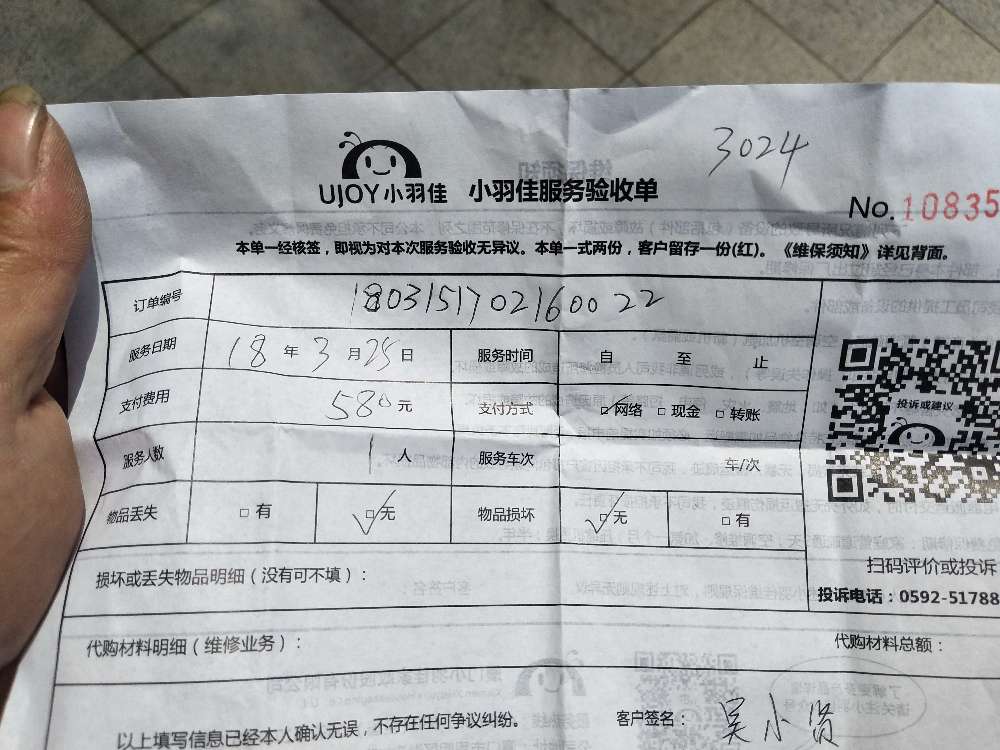 3024
UJOY小羽佳 小羽佳服务验收单
No.10835
本单一经核签，即视为对本次服务验收无异议。本单一式两份，客户留存一份(红)。《维保须知》详见背面。
订单编号 18031517021600 22
服务日期 18 年 3 月 25 日 服务时间 自 至 止
支付费用 580 元 支付方式 □网络 □现金 □转账
服务人数 1 人 服务车次 车/次
物品丢失 □有 □无 物品损坏 □无 □有
投诉或建议
扫码评价或投诉
投诉电话：0592-51788
损坏或丢失物品明细（没有可不填）：
代购材料明细（维修业务）： 代购材料总额：
以上填写信息已经本人确认无误，不存在任何争议纠纷。 客户签名： 吴小贤